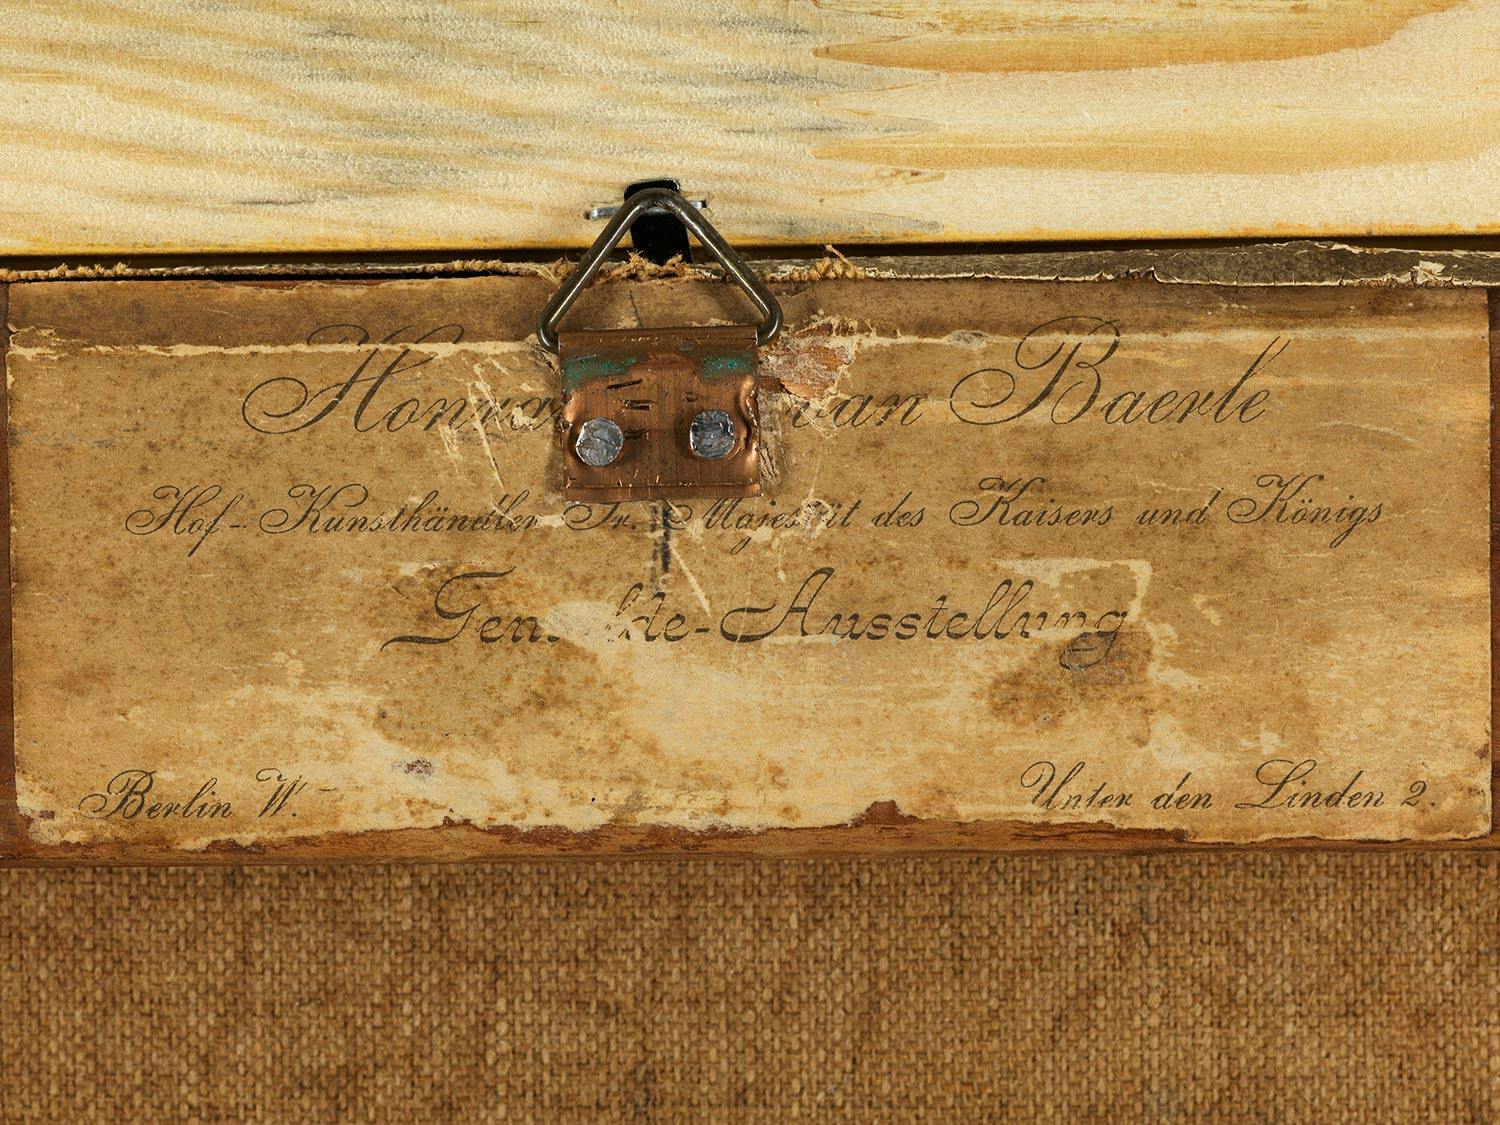 van Baerle
Hof-Kunsthändler Sr. Majestät des Kaisers und Königs
Gemälde-Ausstellung
Berlin W. Unter den Linden 2.